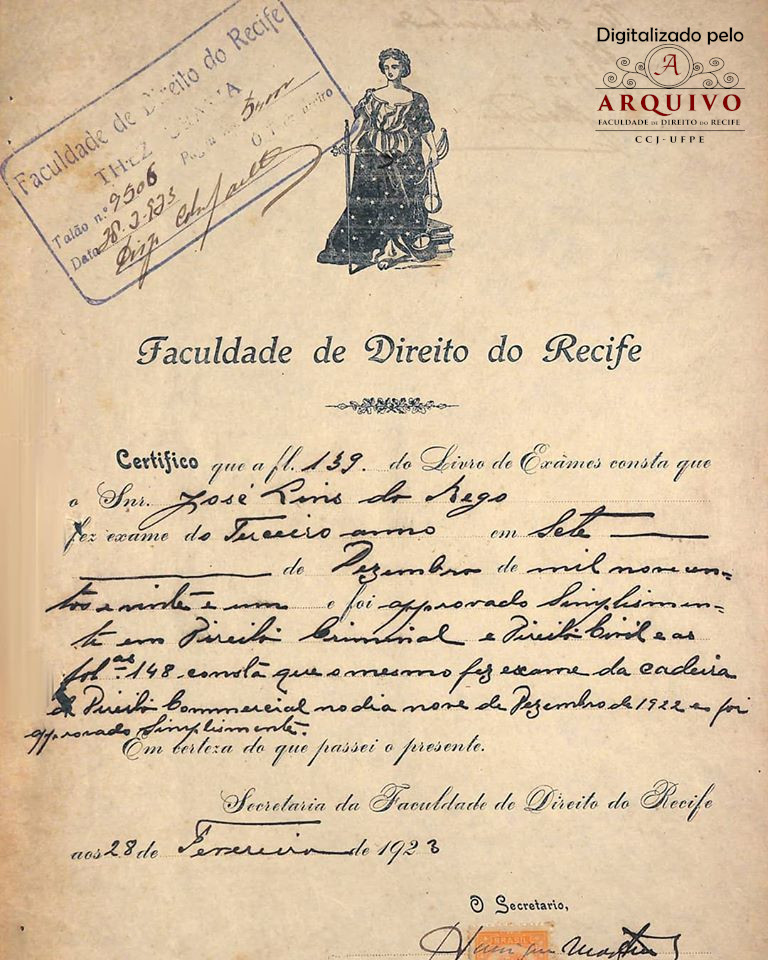 Digitalizado pelo
A
ARQUIVO
FACULDADE DE DIREITO DO RECIFE
CCJ-UFPE
Faculdade de Direito do Recife
Talão n.º 9506
Data 28-2-923
Faculdade de Direito do Recife
Certifico que a fl. 139. do Livro de Exàmes consta que
o Snr. José Lins do Rego
fez exame do Terceiro anno em Sete
de Dezembro de mil nove cen-
tos e vinte e um e foi approvado Simplismen-
te em Direito Criminal e Direito Civil e as
fol.as 148 consta que o mesmo fez exame da cadeira
de Direito Commercial no dia nove de Dezembro de 1922 e foi
approvado Simplismente.
Em certeza do que passei o presente.
Secretaria da Faculdade de Direito do Recife
aos 28 de Fevereiro de 1923
O Secretario,
BRASIL